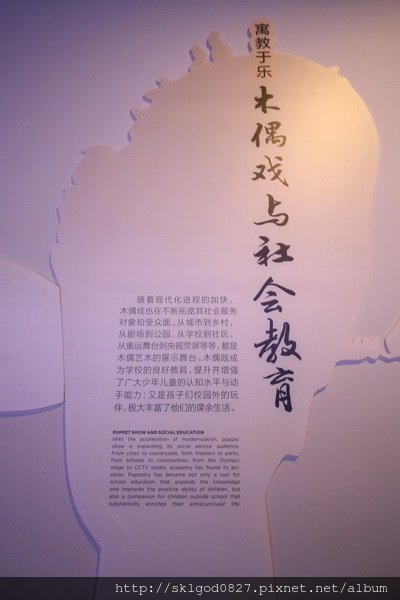 寓教于乐
木偶戏与社会教育
随着现代化进程的加快，
木偶戏也在不断拓宽其社会服务
对象和受众面，从城市到乡村，
从剧场到公园，从学校到社区，
从奥运舞台到央视荧屏等等，都是
木偶艺术的展示舞台。木偶既成
为学校的良好教具，提升并增强
了广大少年儿童的认知水平与动
手能力；又是孩子们校园外的玩
伴，极大丰富了他们的课余生活。
PUPPET SHOW AND SOCIAL EDUCATION
With the acceleration of modernization, puppet
show is expanding its social service audience.
From cities to countryside, from theaters to parks,
from schools to communities, from the Olympic
stage to CCTV studio, puppetry has found its po-
sition. Puppetry has become not only a tool for
school education that expands the knowledge
and improves the practice ability of children, but
also a companion for children outside school that
substantially enriches their extracurricular life.
http://sklgod0827.pixnet.net/album